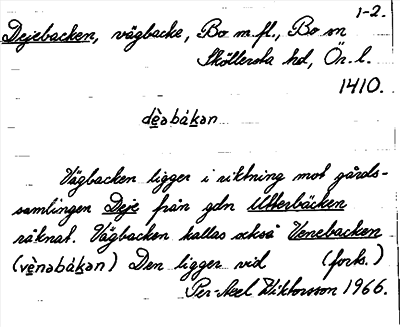 1-2.
Dejebacken, vägbacke, Bo m.fl., Bo sn
Sköllersta hd, Ör. l.
1410.
dèəbák̲an
Vägbacken ligger i riktning mot gårds-
samlingen Deje från gdn Utterbäcken
räknat. Vägbacken kallas också Venebacken
(vènəbák̲an) Den ligger vid (forts.)
Per-Axel Wiktorsson 1966.